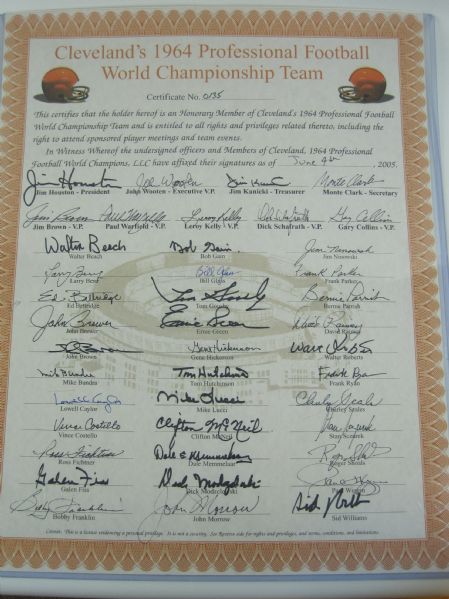 Cleveland's 1964 Professional Football
World Championship Team
Certificate No. 0135
This certifies that the holder hereof is an Honorary Member of Cleveland's 1964 Professional Football
World Championship Team and is entitled to all rights and privileges related thereto, including the
right to attend sponsored player meetings and team events.
In Witness Whereof the undersigned officers and Members of Cleveland, 1964 Professional
Football World Champions, LLC have affixed their signatures as of June 9th, 2005.
Jim Houston John Wooten Jim Kanicki Monte Clark
Jim Houston - President John Wooten - Executive V.P. Jim Kanicki - Treasurer Monte Clark - Secretary
Jim Brown Paul Warfield Leroy Kelly Dick Schafrath Gary Collins
Jim Brown - V.P. Paul Warfield - V.P. Leroy Kelly - V.P. Dick Schafrath - V.P. Gary Collins - V.P.
Walter Beach Bob Gain Jim Ninowski
Walter Beach Bob Gain Jim Ninowski
Larry Benz Bill Glass Frank Parker
Larry Benz Bill Glass Frank Parker
Bernie Parrish
Ed Bettridge Tom Goosby Bernie Parrish
John Brewer Ernie Green
John Brewer Ernie Green David Raimey
Gene Hickerson
John Brown Gene Hickerson Walter Roberts
Mike Bundra Tom Hutchinson Frank Ryan
Mike Bundra Tom Hutchinson Frank Ryan
Lowell Caylor Mike Lucci Charley Scales
Lowell Caylor Mike Lucci Charley Scales
Vince Costello Clifton McNeil Stan Sczurek
Vince Costello Clifton McNeil Stan Sczurek
Ross Fichtner Dale Memmelaar
Ross Fichtner Dale Memmelaar Roger Shoals
Galen Fiss Dick Modzelewski
Galen Fiss Dick Modzelewski Paul Wiggin
Bobby Franklin John Morrow
Bobby Franklin John Morrow Sid Williams
License: This is a license evidencing a personal privilege. It is not a security. See Reverse side for rights and privileges, and terms, conditions, and limitations.